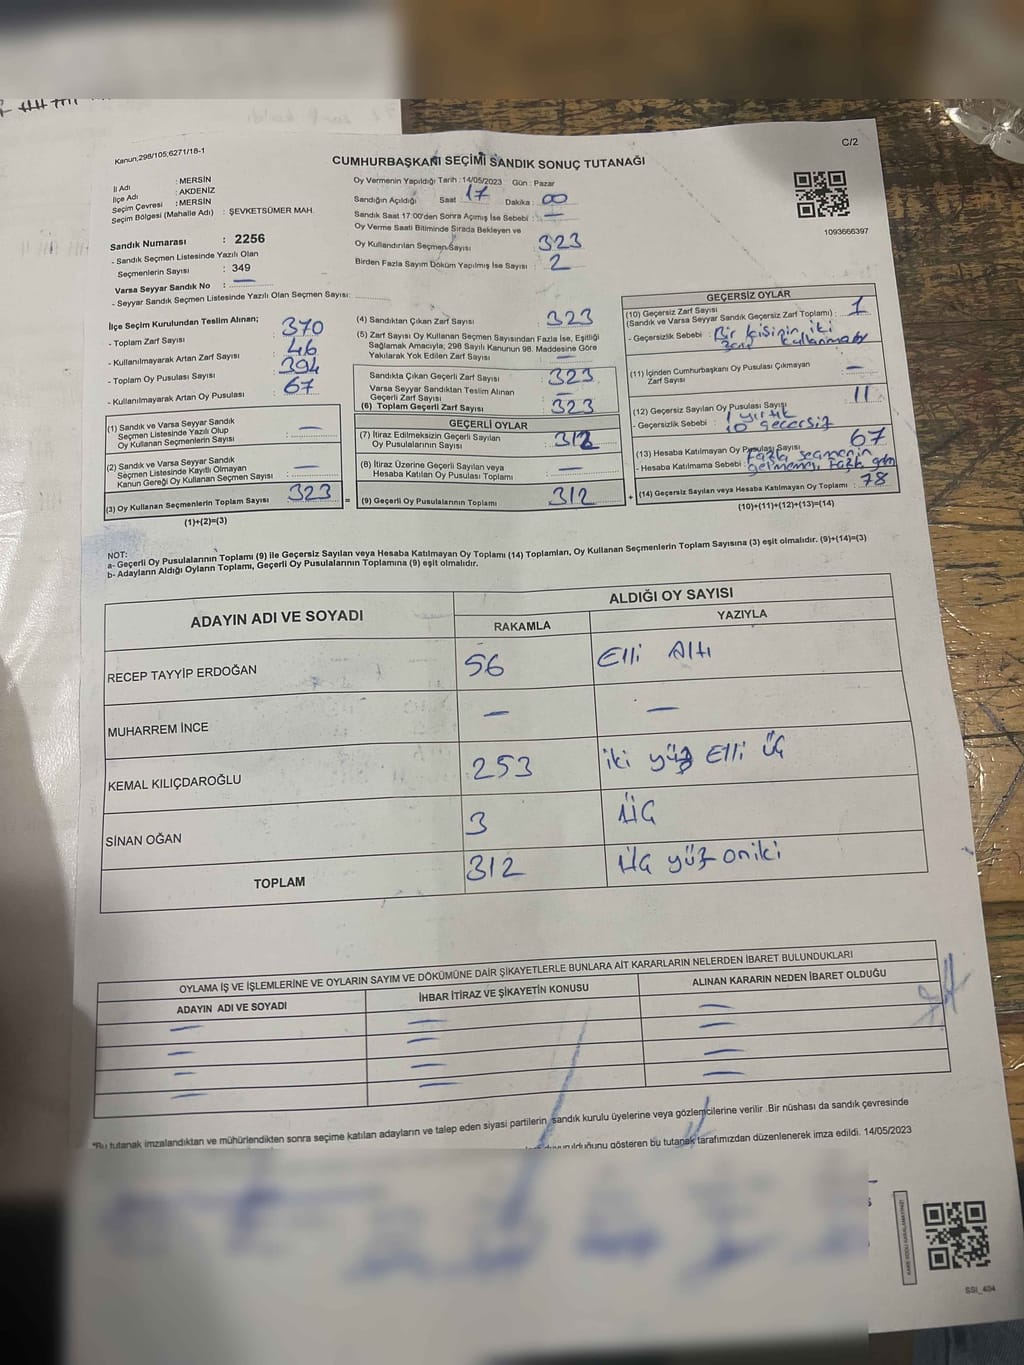 Kanun,298/105,6271/18-1
C/2
CUMHURBAŞKANI SEÇİMİ SANDIK SONUÇ TUTANAĞI
İl Adı : MERSİN
İlçe Adı : AKDENİZ
Seçim Çevresi : MERSİN
Seçim Bölgesi (Mahalle Adı) : ŞEVKETSÜMER MAH.
Sandık Numarası : 2256
- Sandık Seçmen Listesinde Yazılı Olan
Seçmenlerin Sayısı : 349
Varsa Seyyar Sandık No : —
- Seyyar Sandık Seçmen Listesinde Yazılı Olan Seçmen Sayısı:
Oy Vermenin Yapıldığı Tarih : 14/05/2023 Gün : Pazar
Sandığın Açıldığı Saat : 17 Dakika : 00
Sandık Saat 17:00'den Sonra Açımış İse Sebebi : —
Oy Verme Saati Bitiminde Sırada Bekleyen ve
Oy Kullandırılan Seçmen Sayısı : 323
Birden Fazla Sayım Döküm Yapılmış İse Sayısı : 2
1093666397
İlçe Seçim Kurulundan Teslim Alınan;
- Toplam Zarf Sayısı : 370
- Kullanılmayarak Artan Zarf Sayısı : 46
- Toplam Oy Pusulası Sayısı : 394
- Kullanılmayarak Artan Oy Pusulası : 67
(1) Sandık ve Varsa Seyyar Sandık
Seçmen Listesinde Yazılı Olup
Oy Kullanan Seçmenlerin Sayısı : —
(2) Sandık ve Varsa Seyyar Sandık
Seçmen Listesinde Kayıtlı Olmayan
Kanun Gereği Oy Kullanan Seçmen Sayısı : —
(3) Oy Kullanan Seçmenlerin Toplam Sayısı : 323 =
(1)+(2)=(3)
(4) Sandıktan Çıkan Zarf Sayısı : 323
(5) Zarf Sayısı Oy Kullanan Seçmen Sayısından Fazla İse, Eşitliği
Sağlamak Amacıyla, 298 Sayılı Kanunun 98. Maddesine Göre
Yakılarak Yok Edilen Zarf Sayısı : —
Sandıkta Çıkan Geçerli Zarf Sayısı : 323
Varsa Seyyar Sandıktan Teslim Alınan
Geçerli Zarf Sayısı : —
(6) Toplam Geçerli Zarf Sayısı : 323
GEÇERLİ OYLAR
(7) İtiraz Edilmeksizin Geçerli Sayılan
Oy Pusulasının Sayısı : 312
(8) İtiraz Üzerine Geçerli Sayılan veya
Hesaba Katılan Oy Pusulası Toplamı : —
(9) Geçerli Oy Pusulalarının Toplamı : 312 +
GEÇERSİZ OYLAR
(10) Geçersiz Zarf Sayısı
(Sandık ve Varsa Seyyar Sandık Geçersiz Zarf Toplamı) : 1
- Geçersizlik Sebebi : Bir kişinin iki
zarf kullanması
(11) İçinden Cumhurbaşkanı Oy Pusulası Çıkmayan
Zarf Sayısı : —
(12) Geçersiz Sayılan Oy Pusulası Sayısı : 11
- Geçersizlik Sebebi : 1 yırtık
10 geçersiz
(13) Hesaba Katılmayan Oy Pusulası Sayısı : 67
- Hesaba Katılmama Sebebi : Fazla seçmenin
gelmemesi, Fazla
(14) Geçersiz Sayılan veya Hesaba Katılmayan Oy Toplamı : 78
(10)+(11)+(12)+(13)=(14)
NOT:
a- Geçerli Oy Pusulalarının Toplamı (9) ile Geçersiz Sayılan veya Hesaba Katılmayan Oy Toplamı (14) Toplamları, Oy Kullanan Seçmenlerin Toplam Sayısına (3) eşit olmalıdır. (9)+(14)=(3)
b- Adayların Aldığı Oyların Toplamı, Geçerli Oy Pusulalarının Toplamına (9) eşit olmalıdır.
ADAYIN ADI VE SOYADI
ALDIĞI OY SAYISI
RAKAMLA YAZIYLA
RECEP TAYYİP ERDOĞAN 56 Elli Altı
MUHARREM İNCE — —
KEMAL KILIÇDAROĞLU 253 iki yüz Elli Üç
SİNAN OĞAN 3 Üç
TOPLAM 312 Üç yüz oniki
OYLAMA İŞ VE İŞLEMLERİNE VE OYLARIN SAYIM VE DÖKÜMÜNE DAİR ŞİKAYETLERLE BUNLARA AİT KARARLARIN NELERDEN İBARET BULUNDUKLARI
ADAYIN ADI VE SOYADI İHBAR İTİRAZ VE ŞİKAYETİN KONUSU ALINAN KARARIN NEDEN İBARET OLDUĞU
*Bu tutanak imzalandıktan ve mühürlendikten sonra seçime katılan adayların ve talep eden siyasi partilerin, sandık kurulu üyelerine veya gözlemcilerine verilir .Bir nüshası da sandık çevresinde
duyurulduğunu gösteren bu tutanak tarafımızdan düzenlenerek imza edildi. 14/05/2023
KARE KODU KARALAMAYINIZ!
SSI_404